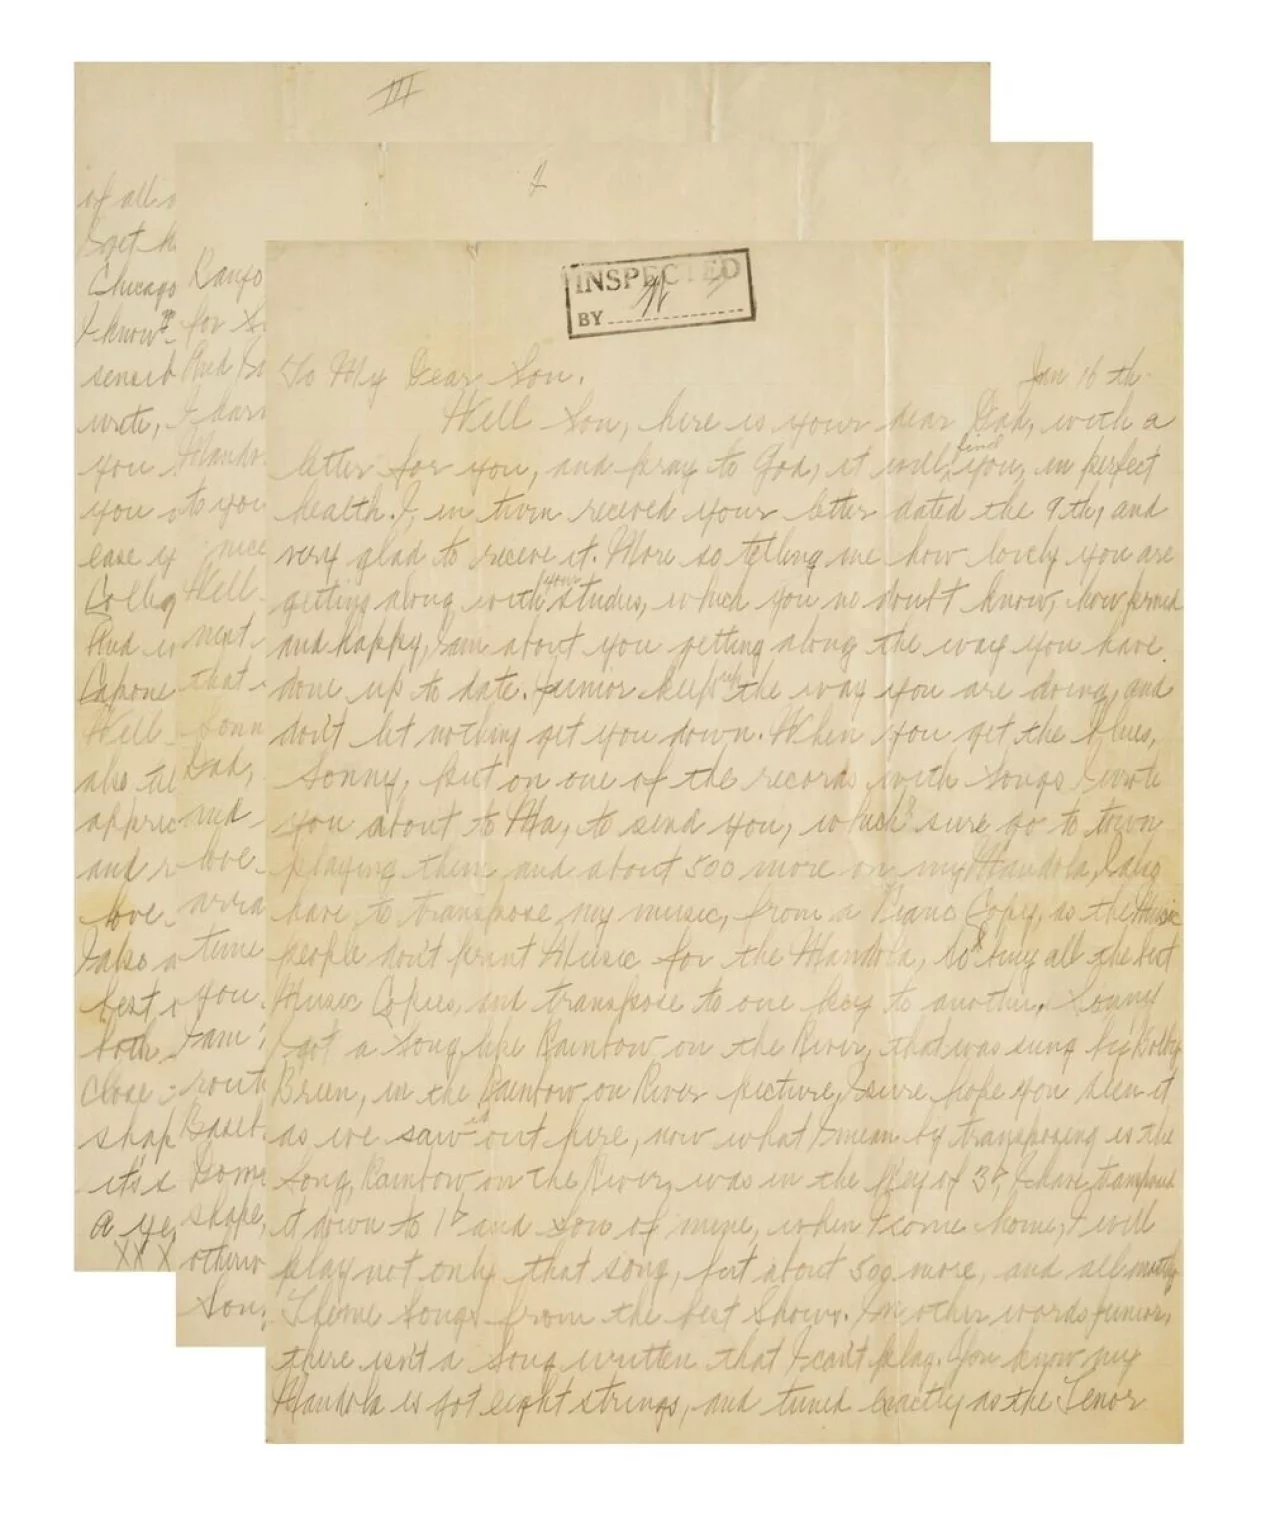 III
of all
Chicago
I know
sensib
write,
you
you
ease y
Colleg
And
Capone
Well
also
apprec
and
love
I also
best
both
Close
shap
it's
a ye
XX X
I
Banjo
for
And
I
Mando
to you
nice
Well
next
that
Sonn
Dad,
and
love
arra
time
you
I am
rout
Baseb
Some
shape,
otherw
Son,
INSPECTED
BY
To My Dear Son. Jan 16 th
Well Son, here is your dear Dad, with a
letter for you, and pray to God, it will find you, in perfect
health. I, in turn received your letter dated the 9th, and
very glad to receve it. More so telling me how lovely you are
getting along with your studies, which you no doubt know, how proud
and happy, I am about you getting along the way you have
done up to date. Junior keep up the way you are doing, and
don't let nothing get you down. When you get the blues,
Sonny, put on one of the records, with songs I wrote
you about to Ma, to send you, which I sure go to town
playing them and about 500 more on my Mandola, I also
have to transpose my music, from a Piano Copy, as the Music
people don't print Music for the Mandola, so I buy all the best
Music Copies, and transpose to one key to another. Sonny
I got a song like Rainbow on the River, that was sung by Bobby
Breen, in the Rainbow on River picture, I sure hope you seen it
as we saw it out here, now what I mean by transposing is the
Song, Rainbow on the River, was in the Key of 3♭, I have transposed
it down to 1♭ and Son of mine, when I come home, I will
play not only that song, but about 500 more, and all mostly
Theme Songs from the best Shows. In other words Junior,
there isn't a Song written that I can't play. You know my
Mandola is got eight strings, and tuned exactly as the Tenor